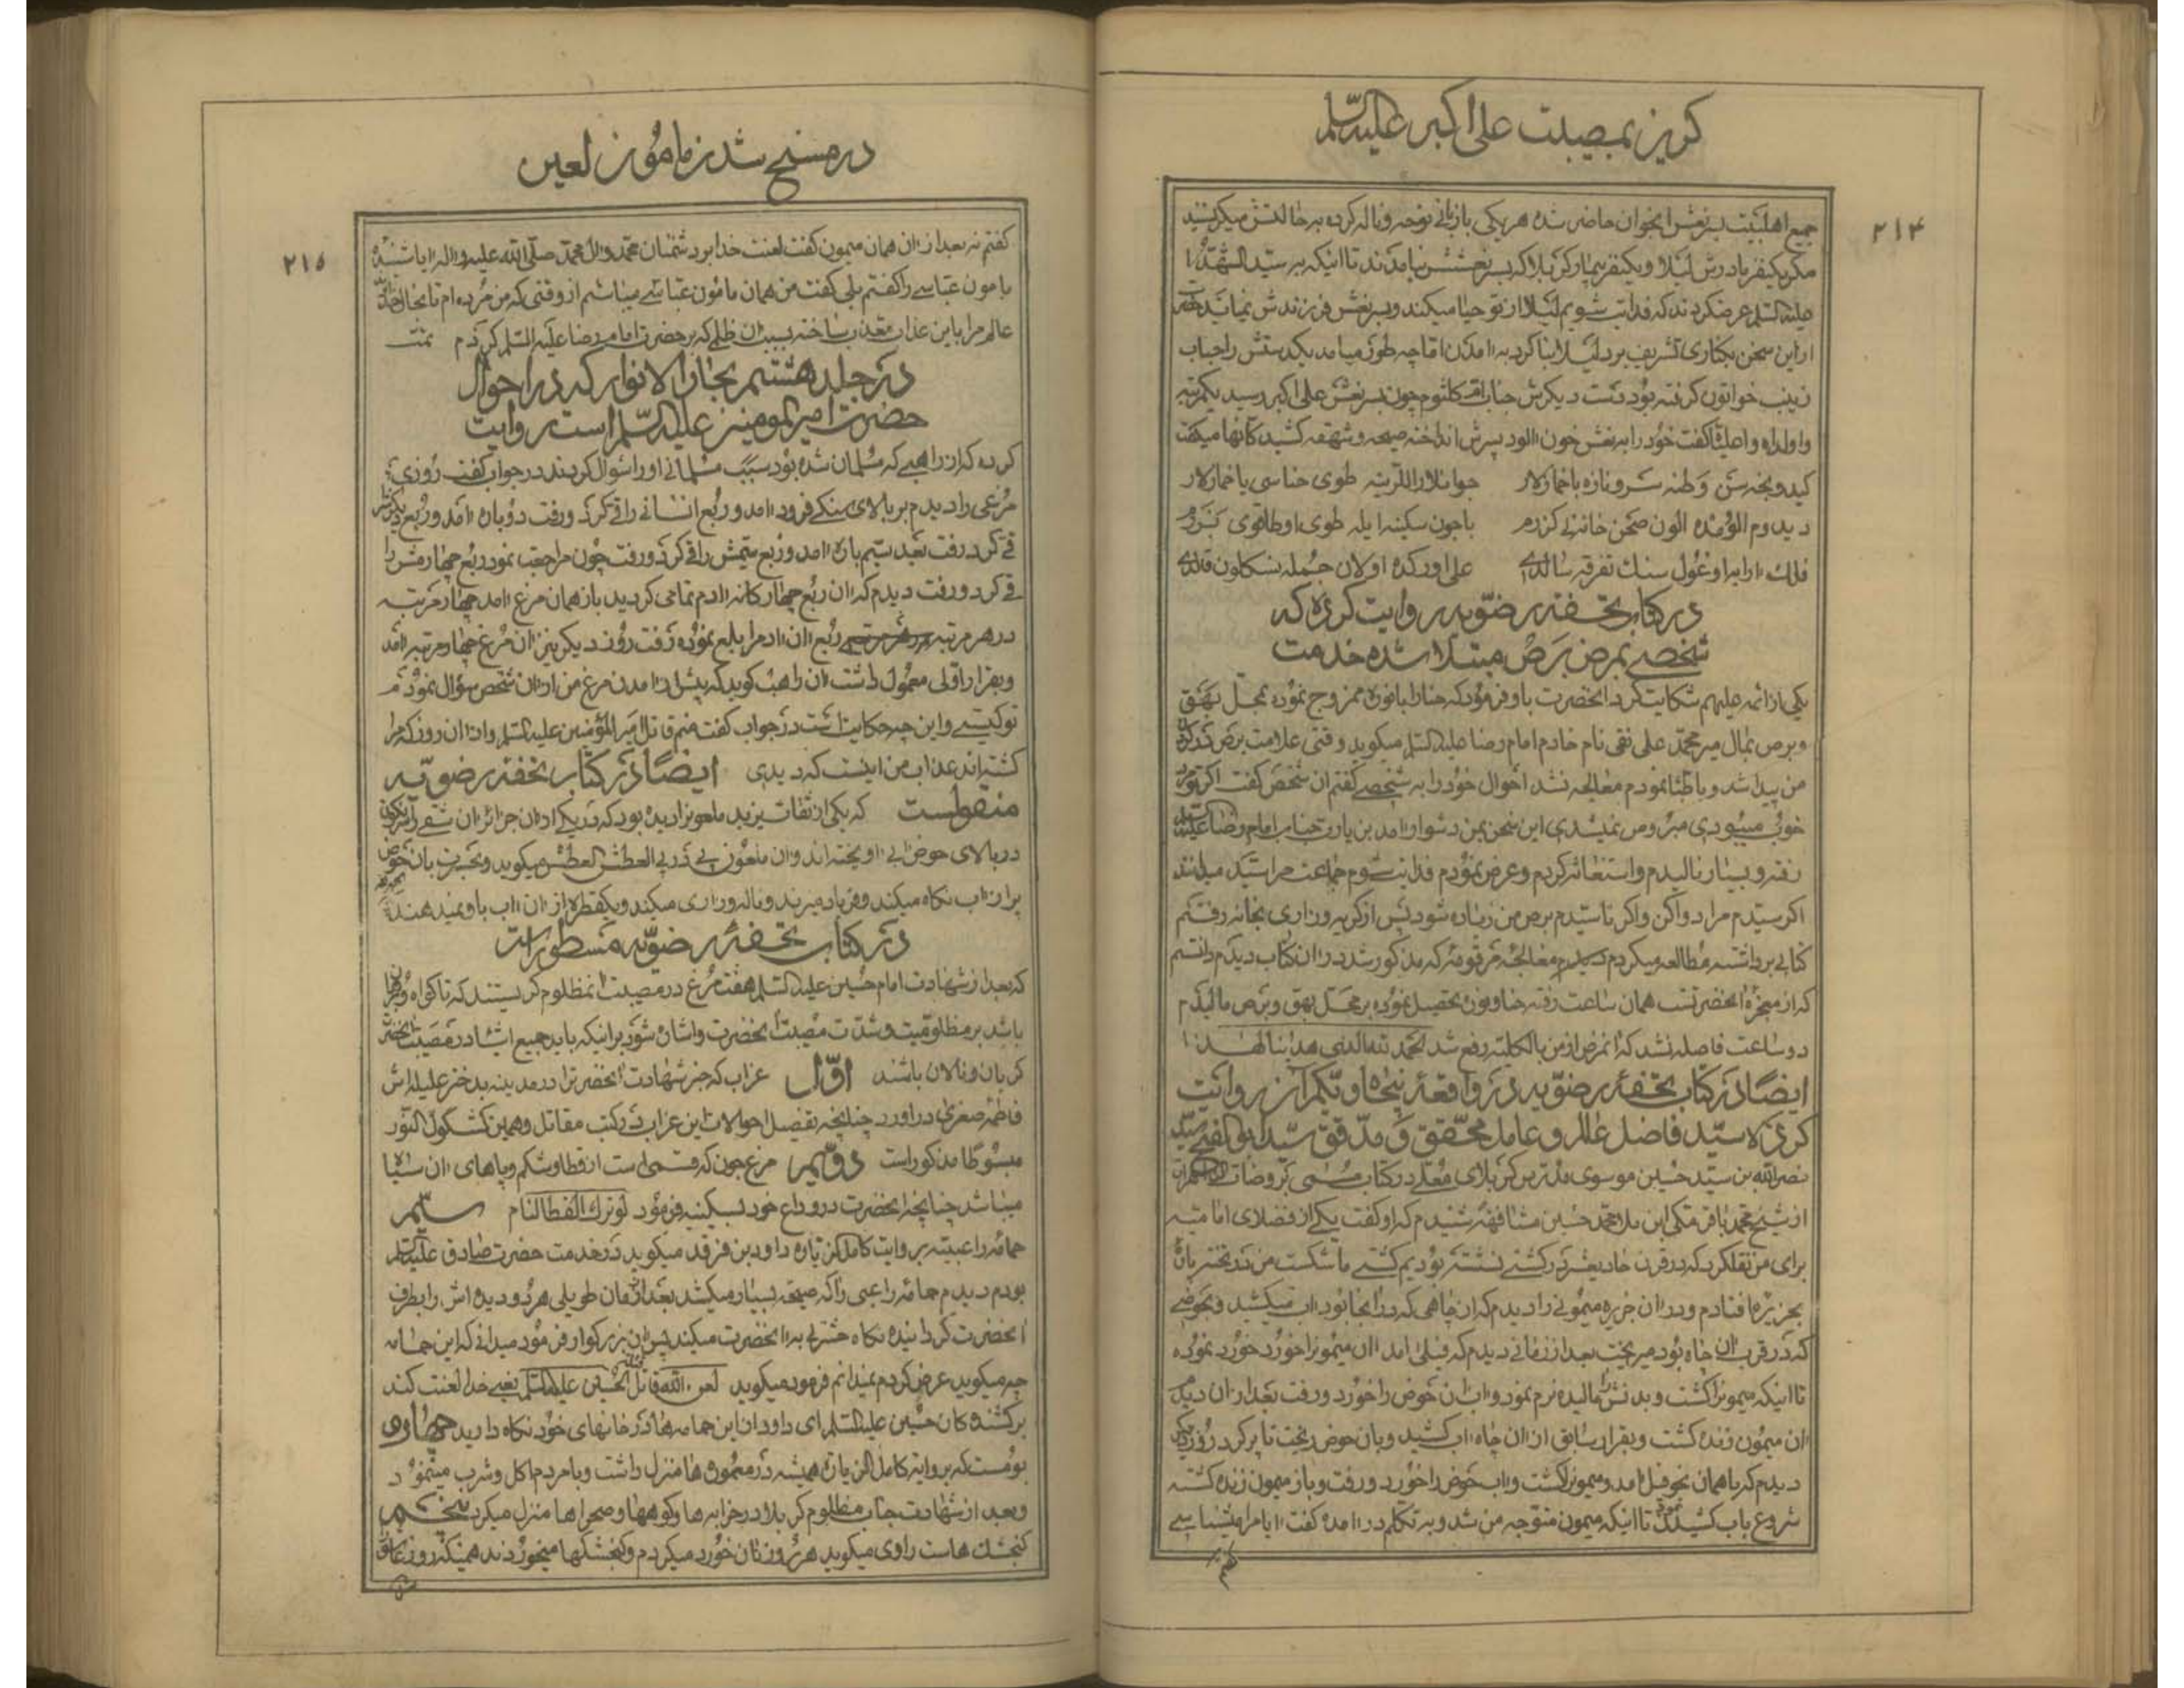 گریز بمصیبت علی اکبر علیه السلم
۲۱۴
جمیع اهلبیت بر نعش انجوان حاضر شده هر یکی بازبانی نوحه و ناله کرده به حالتش میگریستند
مگر یکنفر مادرش لیلا و یکنفر بیمار کربلا که بسر نعشش نیامدند تا اینکه به سید الشهدا
علیه السلم عرض کردند که فدایت شویم لیلا از تو حیا میکند و بسر نعش فرزندش نمیاید
از این سخن بکناری تشریف برد لیلا بنا کرد به امدن اما چه طور میامد یکدستش را جناب
زینب خواتون گرفته بود دست دیگرش جناب ام کلثوم چون بسر نعش علی اکبر رسید یکمرتبه
واولداه و اعلیا گفت خود را به نعش خون الود پسرش انداخته صیحه و شهقه کشید کانها میگفت
گیدوبخه سن وطنه سرو نازه باخمازلار
جوانلار اللرینه طوی حناسی یاخمازلار
دیدوم الومده الون صحن خانه لی گزرم
باجون سکینه ایله طوی اوطاقوی بزرم
فلک ارایه اوغول سنک تفرقه سالدی
علی اورکده اولان جمله نسگلون قالدی
در کتاب تحفه رضویه روایت کرده که
شخصی بمرض برص مبتلا شده خدمت
یکی از ائمه علیهم شکایت کرد انحضرت باو فرمود که حنا را بانوره ممزوج نموده بمحل بهق
و برص بمال میر محمد علی نقی نام خادم امام رضا علیه السلم میگوید وقتی علامت برص در
من پیدا شد و باطبا نمودم معالجه نشد احوال خود را به شخصی گفتم ان شخص گفت اگر تو
خوب میبودی مبروص نمیشدی این سخن بمن دشوار امد بزیارت جناب امام رضا علیه السلم
رفته و بسیار نالیدم و استغاثه کردم و عرض نمودم فدایت شوم جماعت مرا سید میدانند
اگر سیدم مرا دوا کن و اگر نا سیدم برص من زیاده شود پس از گریه و زاری بخانه رفتم
کتابی برداشته مطالعه میکردم دیدم معالجه مرقومه که مذکور شد در ان کتاب دیدم دانستم
که از معجزه انحضرتست همان ساعت رفته حنا و نوره تحصیل نموده بر محل بهق و برص مالیدم
دو ساعت فاصله نشد که انمرض از من بالکلیه رفع شد الحمد لله الذی هدینا لهذا
ایضا در کتاب تحفه رضویه در واقعه پنجاه و یکم از روایت
کرده سید فاضل عالم و عامل محقق و مدقق سید ابو الفتح
نصر الله بن سید حسین موسوی مدرس کربلای معلی در کتاب مسمی بروضات
از شیخ محمد باقر مکی ابن ملا محمد حسین مشافهة شنیدم که او گفت یکی از فضلای امامیه
برای من نقل کرد که در قرن حادیعشر در کشتی نشسته بودیم کشتی ما شکست من در تخته پاره
بجزیره افتادم و در ان جزیره میمونی را دیدم که از چاهی که در انجا بود اب میکشید و بحوضی
که در قرب ان چاه بود میریخت بعد از زمانی دیدم که فیلی امد ان میمونرا خورد خورد نموده
تا اینکه میمونرا کشت و بدنش را مالیده نرم نمود و اب ان حوض را خورد و رفت بعد از ان دیدم
ان میمون زنده گشت و بقرار سابق از ان چاه اب کشید و بان حوض ریخت تا پر کرد روز دیگر
دیدم که باهمان نحو فیل امد و میمونرا کشت و اب حوض را خورد و رفت و باز میمون زنده گشته
شروع باب کشیدن نمود تا اینکه میمون متوجه من شد و به تکلم در امده گفت ایا مرا میشناسی
گفتم
در مسخ شدن مامون لعین
۲۱۵
گفتم نه بعد از ان همان میمون گفت لعنت خدا بر دشمنان محمد و ال محمد صلی الله علیه و اله ایا شنیده
مامون عباسی را گفتم بلی گفت من همان مامون عباسی میباشم از وقتی که من مرده ام تا بحال
عالم مرا باین عذاب معذب ساخته بسبب ان ظلمی که بر حضرت امام رضا علیه السلم کردم تمت
در جلد هشتم بحار الانوار که در احوال
حضرت امیر المومنین علیه السلم است روایت
کرده که از راهبی که مسلمان شده بود سبب مسلمانی او را سوال کردند در جواب گفت روزی
مرغی را دیدم بر بالای سنگی فرود امد و ربع انسانی را قی کرد و رفت دوباره امد و ربع دیگرش
قی کرد رفت بعد سیم باره امد و ربع سیمش را قی کرد و رفت چون مراجعت نمود ربع چهارمش را
قی کرد و رفت دیدم که ان ربع چهار گانه ادم تمامی گردید باز همان مرغ امد چهار مرتبه
در هر مرتبه ربع ان ادم را بلع نموده رفت روز دیگر نیز ان مرغ چهار مرتبه امد
و بقرار اولی معمول داشت ان راهب گوید که پیش از امدن مرغ من از ان شخص سؤال نمودم
تو کیستی و این چه حکایت است در جواب گفت منم قاتل امیر المؤمنین علیه السلم و از ان روز که مرا
کشته اند عذاب من اینست که دیدی ایضا در کتاب تحفه رضویه
منقولست که یکی از ثقات یزید ملعونرا دیده بود که در یکی از ان جزائر ان شقی را
در بالای حوض ابی اویخته اند و ان ملعون پی در پی العطش العطش میگوید و بحسرت بان حوض
پر از اب نگاه میکند و فریاد میزند و ناله و زاری میکند و یکقطره از ان اب باو نمیدهند
در کتاب تحفه رضویه مسطور است
که بعد از شهادت امام حسین علیه السلم هفت مرغ در مصیبت انمظلوم گریستند که تا گواه و
باشد بر مظلومیت و شدت مصیبت انحضرت و اشان شود بر انیکه باید جمیع اشیا در مصیبت انحضرت
گریان و نالان باشند اول غراب که خبر شهادت انحضرترا در مدینه بدختر علیله اش
فاطمه صغری در اورد چنانچه تفصیل احوالات این غراب در کتب مقاتل و همین کشکول النور
مبسوطا مذکور است دویم مرغ جون که قسمی است از قطا و شکم و پاهای ان سیاه
میباشد چنانچه انحضرت در وداع خود بسکینه فرمود لو ترک القطا لنام سیم
حمامه راعبیه بروایت کامل الزیاره داود بن فرقد میگوید در خدمت حضرت صادق علیه السلم
بودم دیدم حمامه راعبی را که صیحه بسیار میکشد بعد از زمان طویلی هر دو دیده اش را بطرف
انحضرت گردانیده نگاه حسرتی به انحضرت میکند پس ان بزرگوار فرمود میدانی که این حمامه
چه میگوید عرض کردم نمیدانم فرمود میگوید لعن الله قاتل الحسین علیه السلم یعنی خدا لعنت کند
بر کشنده کان حسین علیه السلم ای داود از این حمامه ها در خانهای خود نگاه دارید چهارم
بومست که بروایة کامل الزیاره همیشه در معموره ها منزل داشت و بامردم اکل و شرب مینمود
و بعد از شهادت جناب مظلوم کربلا در خرابه ها و کوهها و صحراها منزل میکرد پنجم
گنجشک هاست راوی میگوید هر روز نان خورد میکردم و گنجشکها میخوردند همینکه روز عاشورا